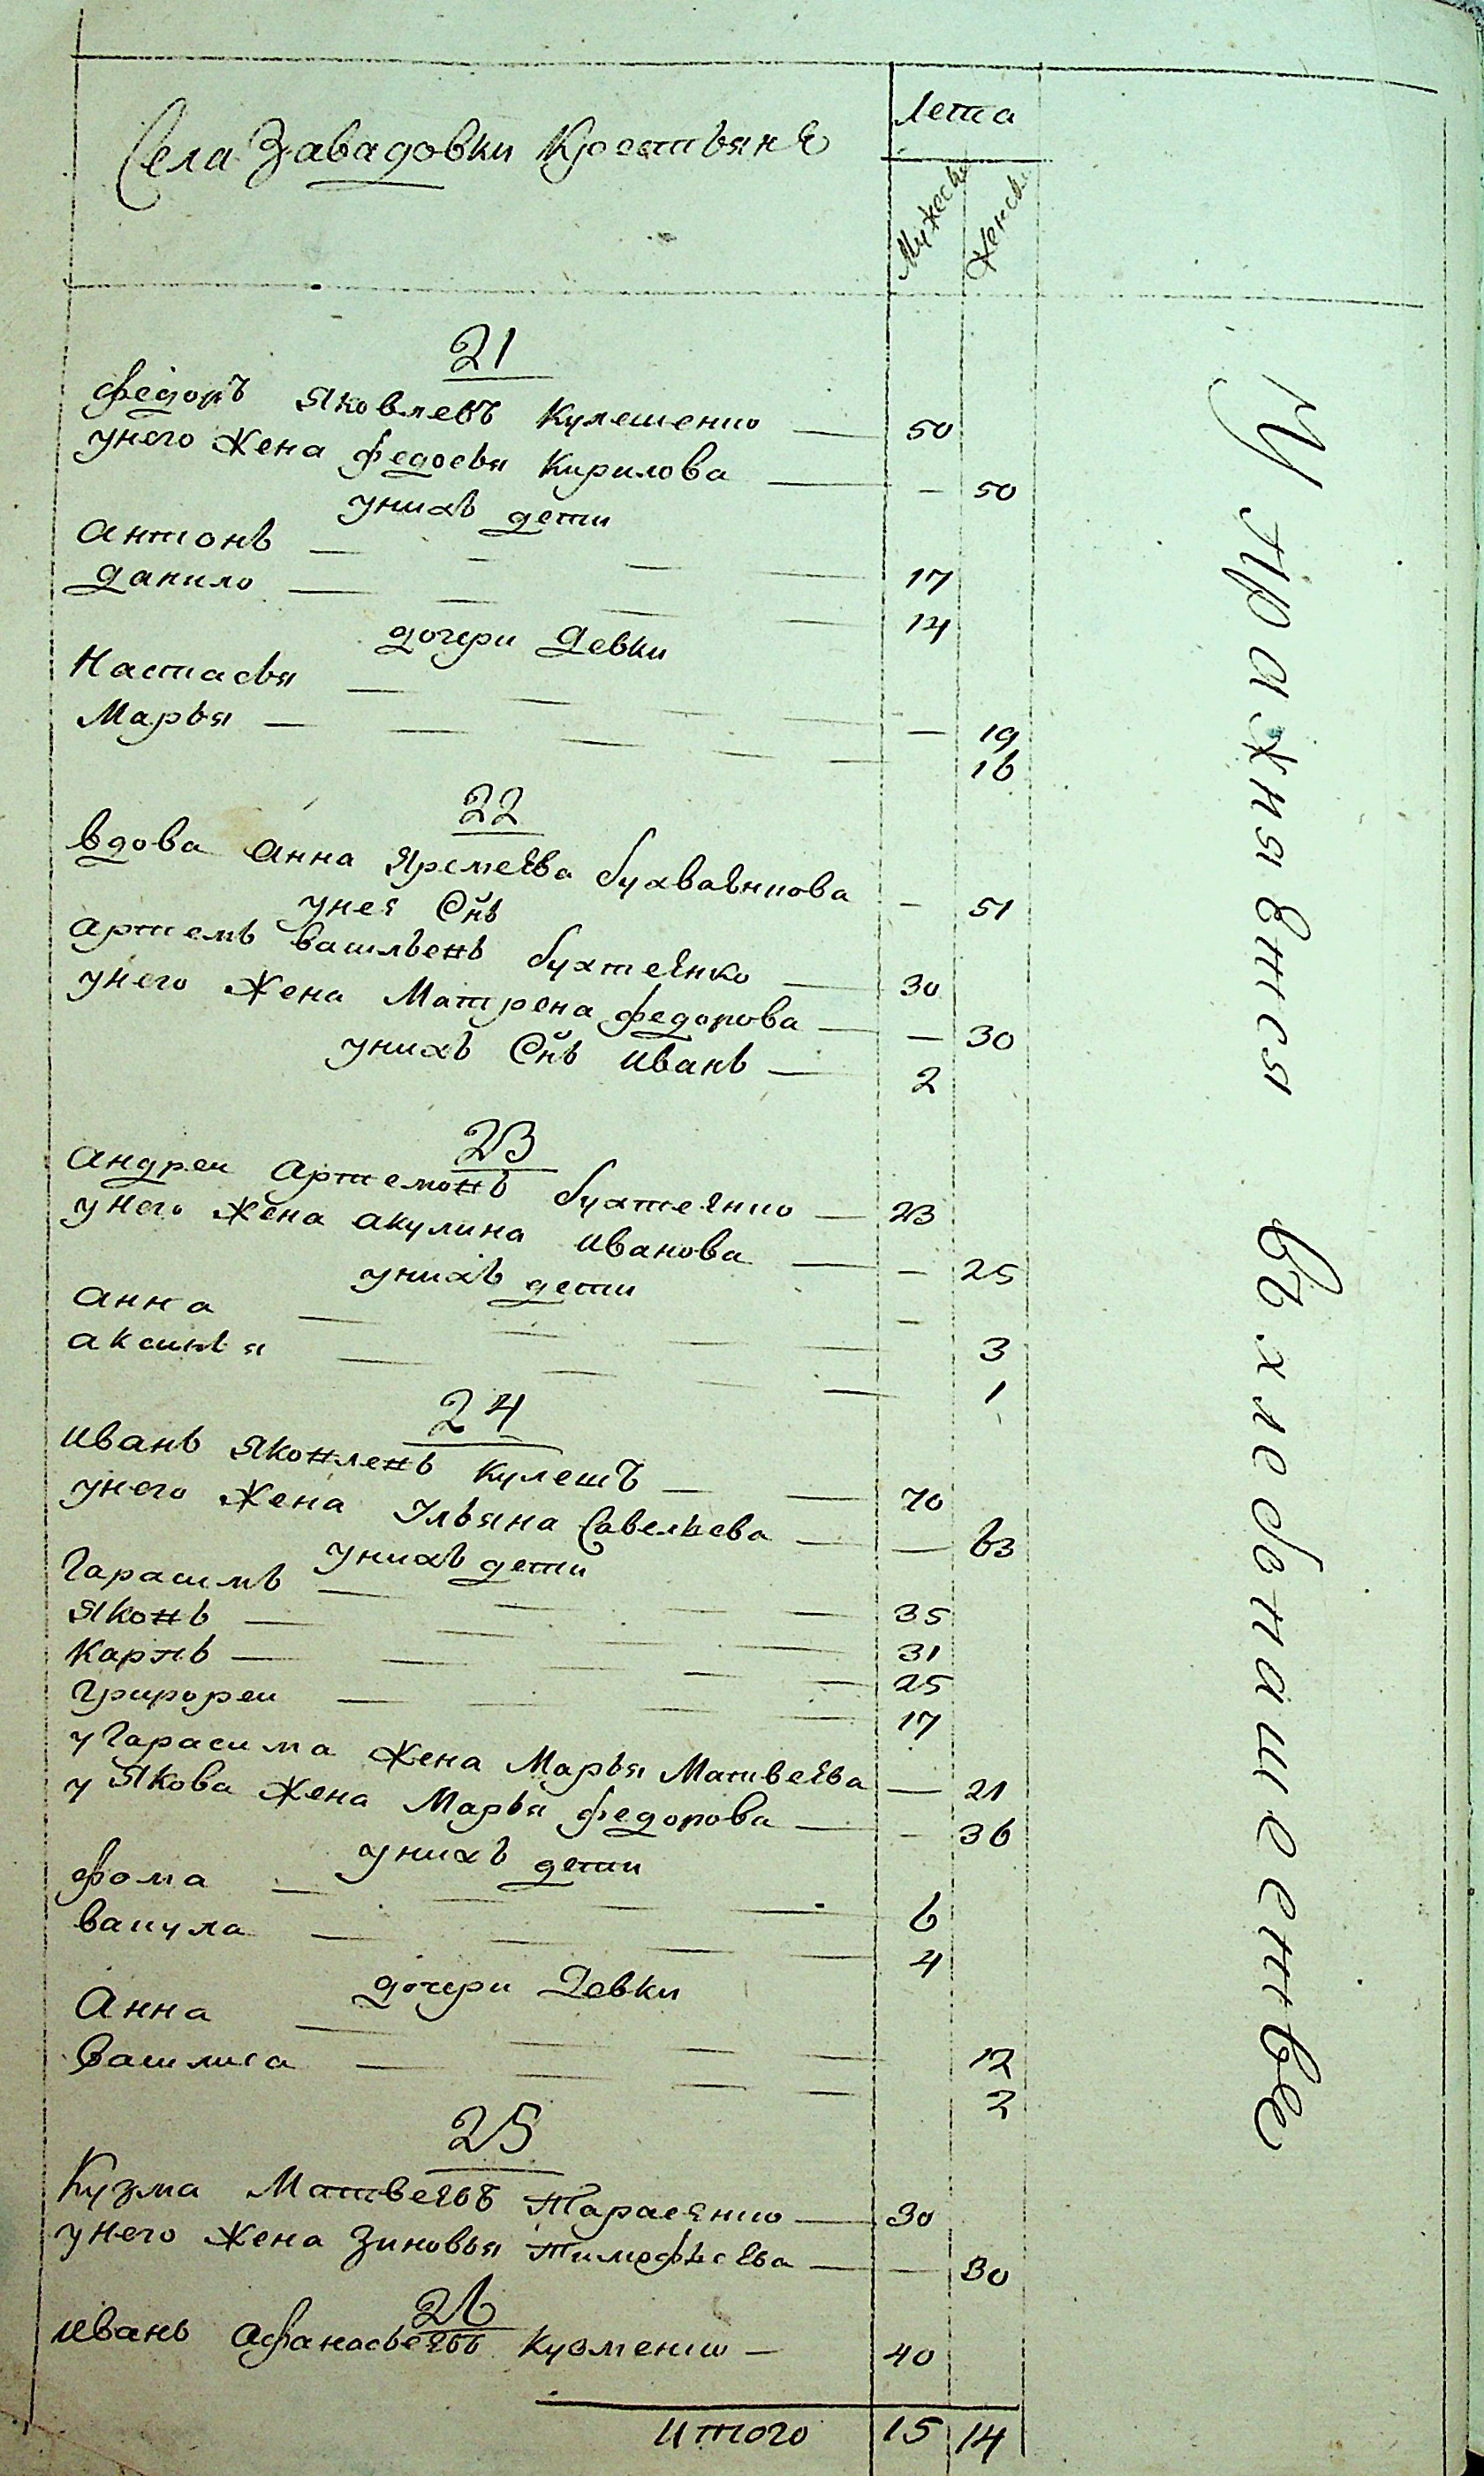 Села Завадовки Крестьянѣ
Лета
Мужеска
Женска
21
федоръ Яковлевъ Кулешенко 50
унего жена федосья Кирилова — 50
унихъ дети
антонъ 17
данило 14
дочери девки
Настасья — 19
Марья 16
22
вдова анна Яремеева бухваенкова — 51
унея Снъ
артемъ васильевъ бухтеенко 30
унего жена Матрена федорова — 30
унихъ Снъ иванъ 2
23
андреи артемовъ бухтеенко 23
унего жена акулина иванова — 25
унихъ дети
анна — 3
аксинья 1
24
иванъ Яковлевъ кулешъ 70
унего жена Ульяна Савельева — 63
унихъ дети
Гарасимъ 35
Яковъ 31
карпъ 25
григореи 17
у Гарасима жена Марья Матвеева — 21
у Якова жена Марья федорова — 36
унихъ дети
фома 6
вакула 4
дочери девки
Анна 12
Василиса 2
25
Кузма Матвеевъ Тарасенко 30
унего жена Зиновья Тимофеева — 30
26
иванъ афанасьевъ кузменко 40
итого 15 14
Упражняются въ хлебопашенстве